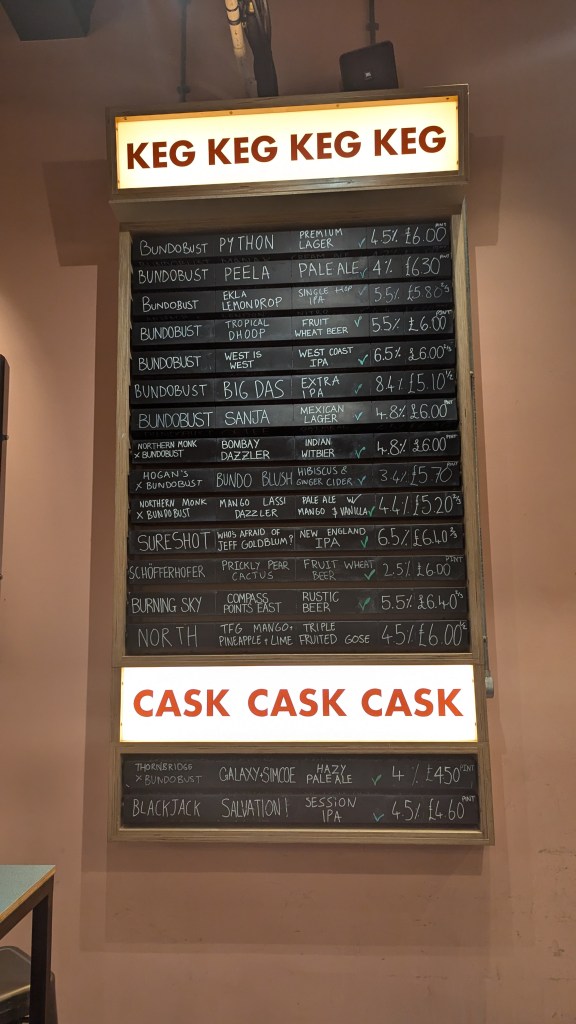 KEG KEG KEG KEG
BUNDOBUST PYTHON PREMIUM LAGER ✓ 4.5% £6.00 PINT
BUNDOBUST PEELA PALE ALE ✓ 4% £6.30 PINT
BUNDOBUST EKLA LEMONDROP SINGLE HOP IPA ✓ 5.5% £5.80 2/3
BUNDOBUST TROPICAL DHOOP FRUIT WHEAT BEER ✓ 5.5% £6.00 PINT
BUNDOBUST WEST IS WEST WEST COAST IPA ✓ 6.5% £6.00 2/3
BUNDOBUST BIG DAS EXTRA IPA ✓ 8.4% £5.10 1/2
BUNDOBUST SANJA MEXICAN LAGER ✓ 4.8% £6.00 PINT
NORTHERN MONK X BUNDOBUST BOMBAY DAZZLER INDIAN WITBIER ✓ 4.8% £6.00 PINT
HOGAN'S X BUNDOBUST BUNDO BLUSH HIBISCUS & GINGER CIDER ✓ 3.4% £5.70 PINT
NORTHERN MONK X BUNDOBUST MANGO LASSI DAZZLER PALE ALE W/ MANGO & VANILLA ✓ 4.4% £5.20 2/3
SURESHOT WHO'S AFRAID OF JEFF GOLDBLUM? NEW ENGLAND IPA ✓ 6.5% £6.40 2/3
SCHÖFFERHOFER PRICKLY PEAR CACTUS FRUIT WHEAT BEER ✓ 2.5% £6.00 PINT
BURNING SKY COMPASS POINTS EAST RUSTIC BEER ✓ 5.5% £6.40 2/3
NORTH TFG MANGO+ PINEAPPLE+LIME TRIPLE FRUITED GOSE 4.5% £6.00 1/2
CASK CASK CASK
THORNBRIDGE X BUNDOBUST GALAXY+SIMCOE HAZY PALE ALE ✓ 4% £4.50 PINT
BLACKJACK SALVATION! SESSION IPA ✓ 4.5% £4.60 PINT